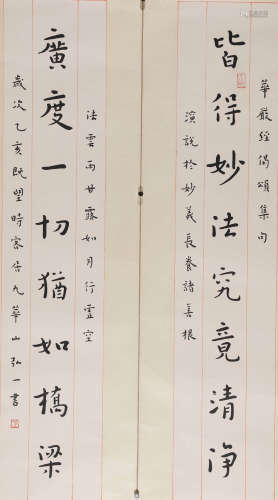 華嚴經偈頌集句
皆得妙法究竟清淨
演說於妙義長養諸善根
法雲雨甘露如月行虛空
廣度一切猶如橋梁
歲次乙亥既望時客居九華山弘一書